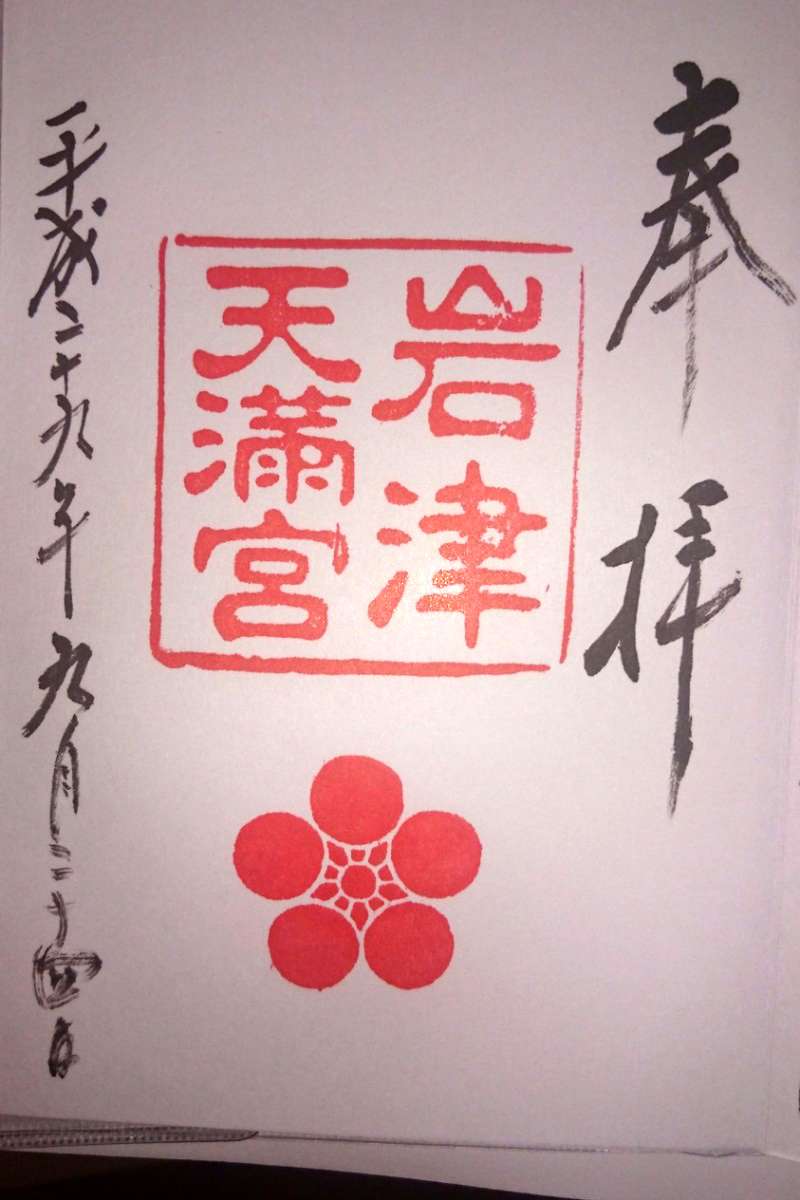 奉拝
岩津
天満宮
平成二十九年九月二十四日